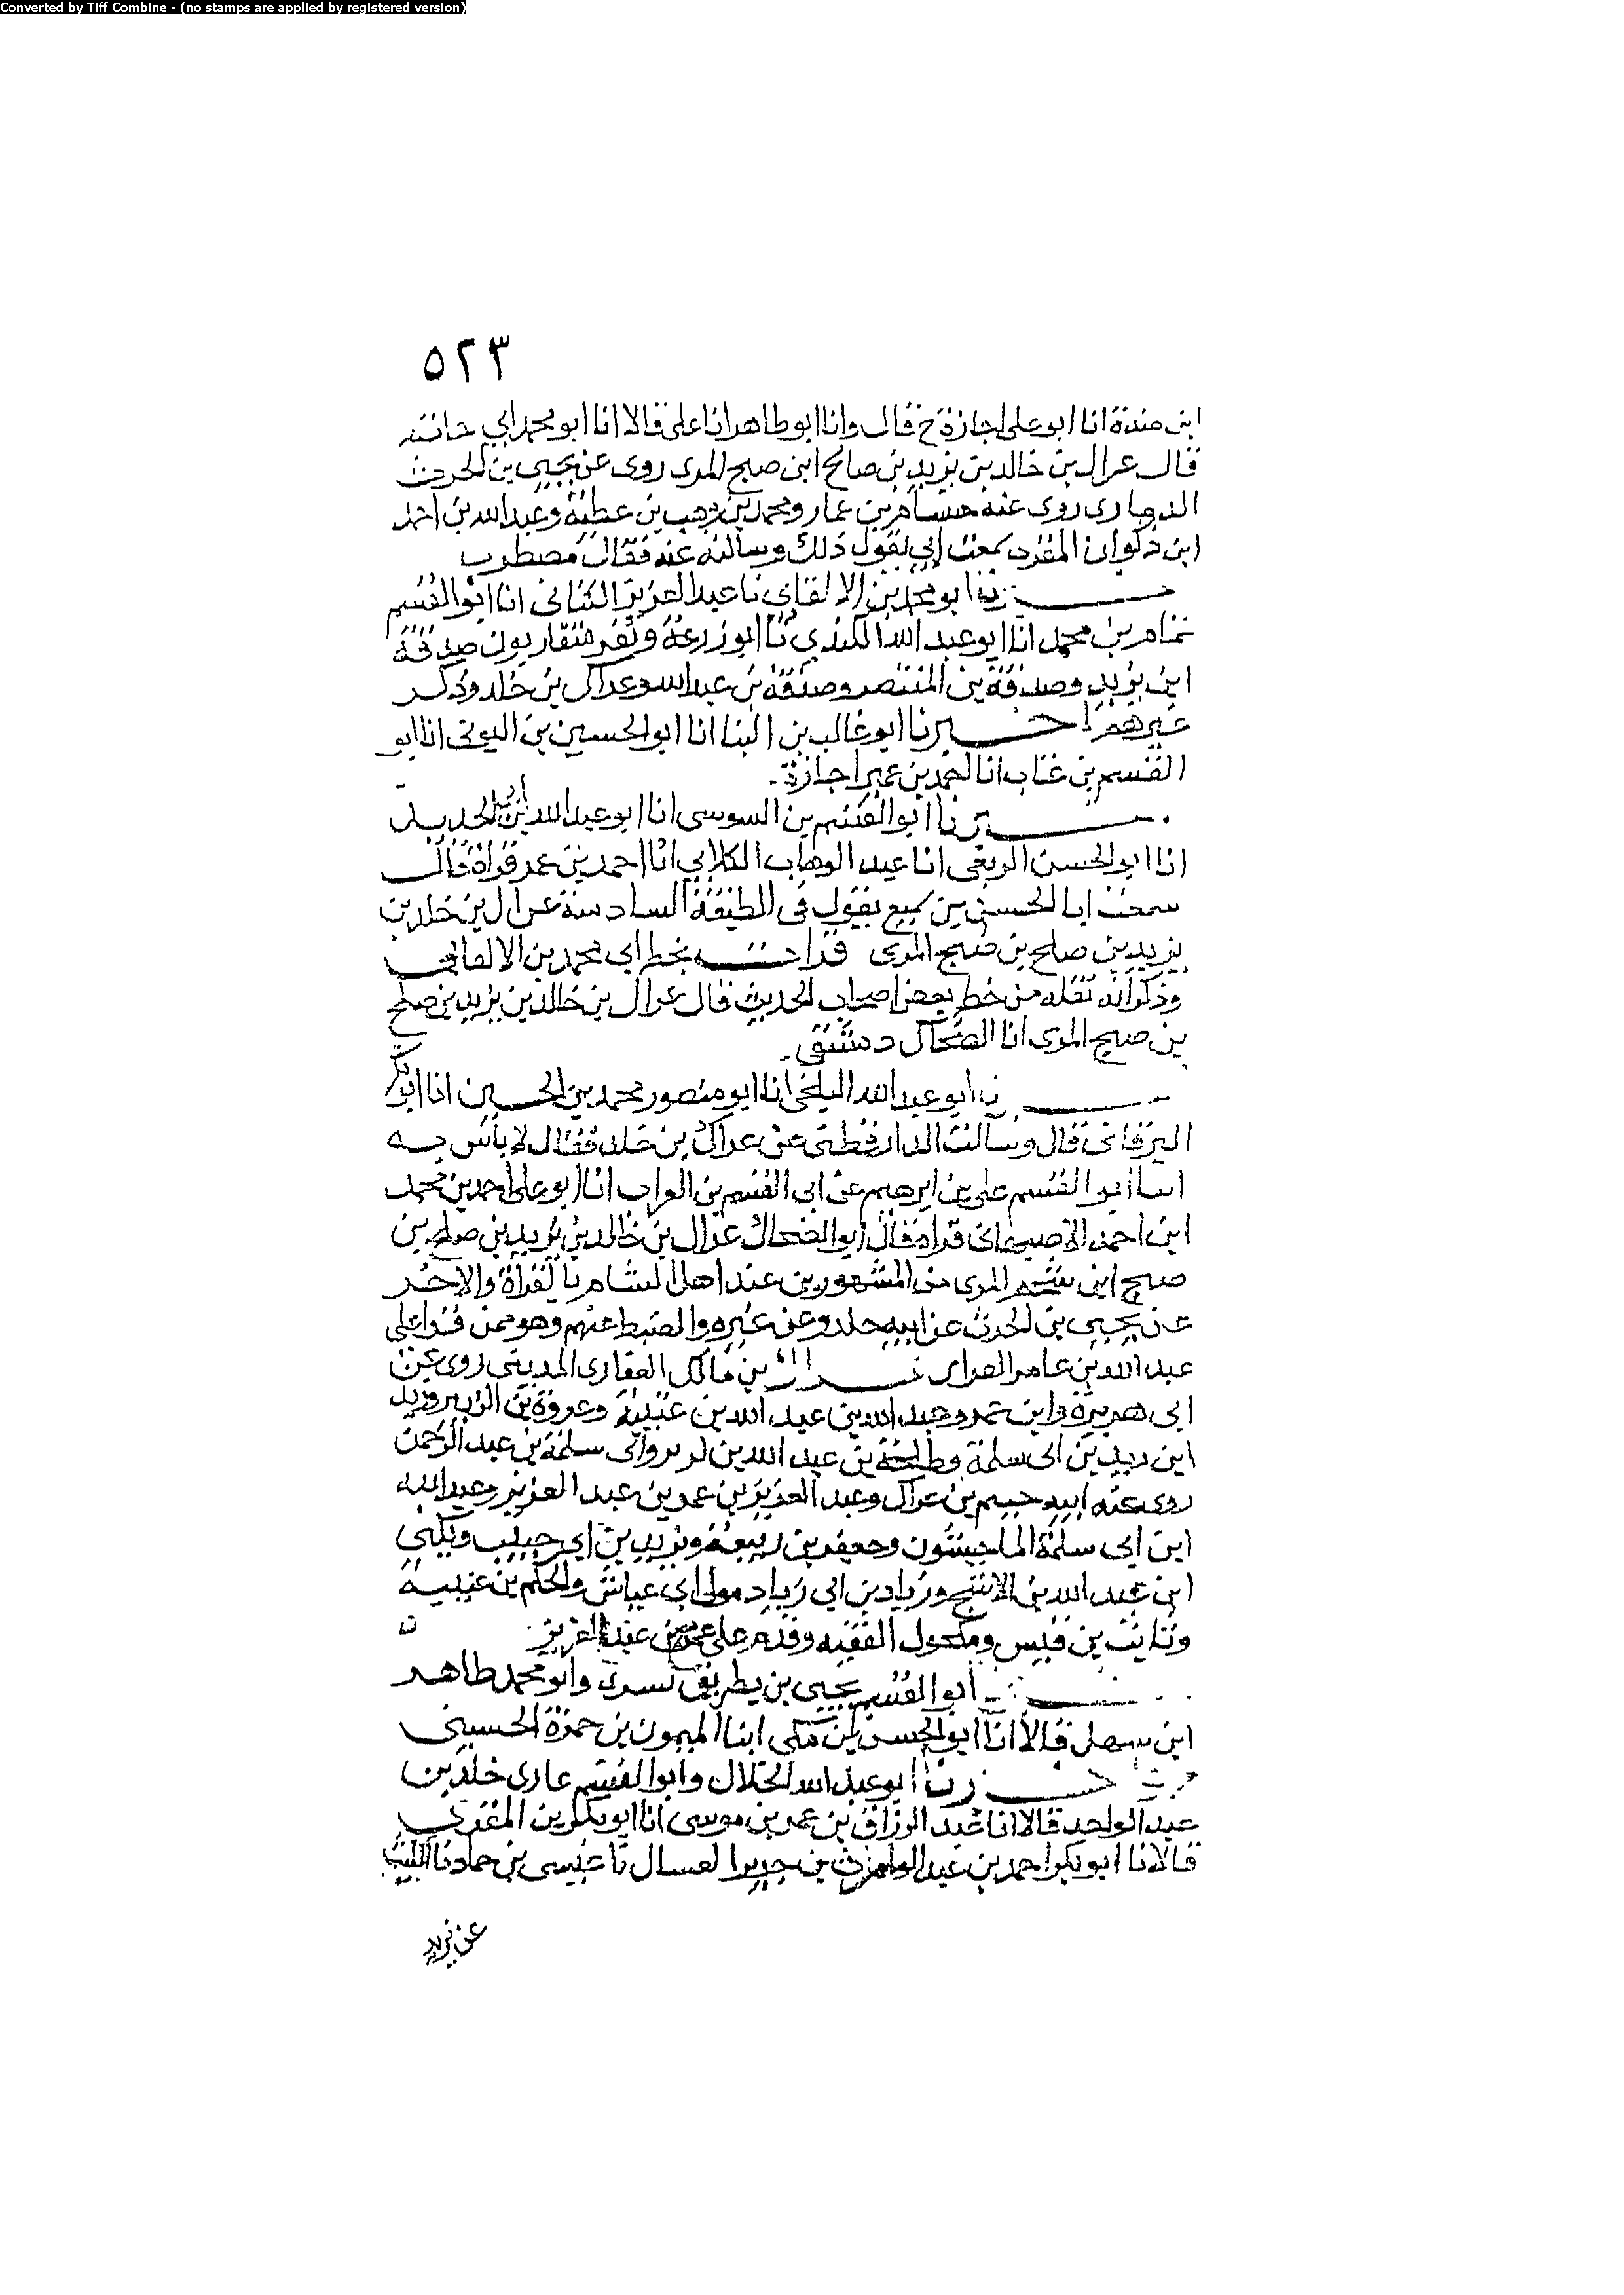 Converted by Tiff Combine - (no stamps are applied by registered version)
٥٢٣
ابن مندة انا ابو على اجازة ح قال وانا ابو طاهر انا على قالا انا ابو محمد ابي حاتم
قال عراك بن خالد بن يزيد بن صالح ابن صبيح المرى روى عن يحيى بن الحرث
الذمارى روى عنه هشام بن عمار ومحمد بن وهب بن عطية وعبد الله بن احمد
ابن ذكوان المقرى سمعت ابي يقول ذلك وسالته عنه فقال مضطرب
نا ابو محمد بن الاكفاني نا عبد العزيز الكتانى انا ابو القسم
تمام بن محمد انا ابو عبد الله الكندي نا ابو زرعة ونفر متقاربون صدقة
ابن يزيد وصدقة بن المنتصر وصدقة بن عبد الله وعراك بن خلد وذكر
غيرهم اخبرنا ابو غالب بن البنا انا ابو الحسين بن انا ابو
القسم بن عتاب انا احمد بن عمير اجازة
برنا ابو القسم بن السوسى انا ابو عبد الله بن ابى الحديد
انا ابو الحسن الربعى انا عبد الوهاب الكلابي انا احمد بن عمر قراة قال
سمعت ابا الحسن بن سميع يقول فى الطبقة السادسة عراك بن خلد بن
يزيد بن صلح بن صبيح المرى قرات بخط ابي محمد بن الاكفاني
وذكر انه نقله من خط بعض اصحاب الحديث قال عراك بن خالد بن يزيد بن صلح
بن صبيح المرى انا الضحاك دمشقى
نا ابو عبد الله البلخى انا ابو منصور محمد بن الحسين انا ابو بكر
البرقانى قال وسالت الدارقطنى عن عراك بن خلد فقال لا باس به
انبا ابو القسم على بن ابرهيم عن ابى القسم بن الفرات انا ابو على احمد بن محمد
ابن احمد الاصبهانى قراة قال ابو الضحاك عراك بن خالد بن يزيد بن صلح بن
صبيح ابن المرى من المشهورين عند اهل الشام بالقراة والاخذ
عن يحيى بن الحرث عن ابيه خلد وعن غيره والضبط عنهم وهو ممن قرا على
عبد الله بن عامر بن مالك الغفارى المدينى روى عن
ابى هريرة وابن عمر وعبد الله بن عبد الله بن عتبة وعروة بن الزبير وزينب
ابى سلمة وطلحة بن عبد الله بن وابى سلمة بن عبد الرحمن
روى عنه ابنه خيثم بن عراك وعبد العزيز بن عمر بن عبد العزيز وعبد الله
ابن ابى سلمة الماجشون وجعفر بن ربيعة ويزيد بن ابي حبيب وبكير
ابن عبد الله بن الاشج وزياد بن ابي زياد مولى ابن عياش والحكم بن عتيبة
وثابت بن قيس ومكحول الفقيه وقدم على عمر بن عبد العزيز
ابو القسم يحيى بن بطريق بن بشرى وابو محمد طاهر
ابن سهل قالا انا ابو الحسن بن مكى انا الميمون بن حمزة الحسينى
ح اخبرنا ابو عبد الله الخلال وابو القسم غازى خلد بن
عبد الواحد قالا انا عبد الرزاق بن عمر بن موسى انا ابو بكر بن المقرى
قالا نا ابو بكر احمد بن عبد الوارث بن جرير العسال نا عيسى بن حماد نا الليث
عن يزيد